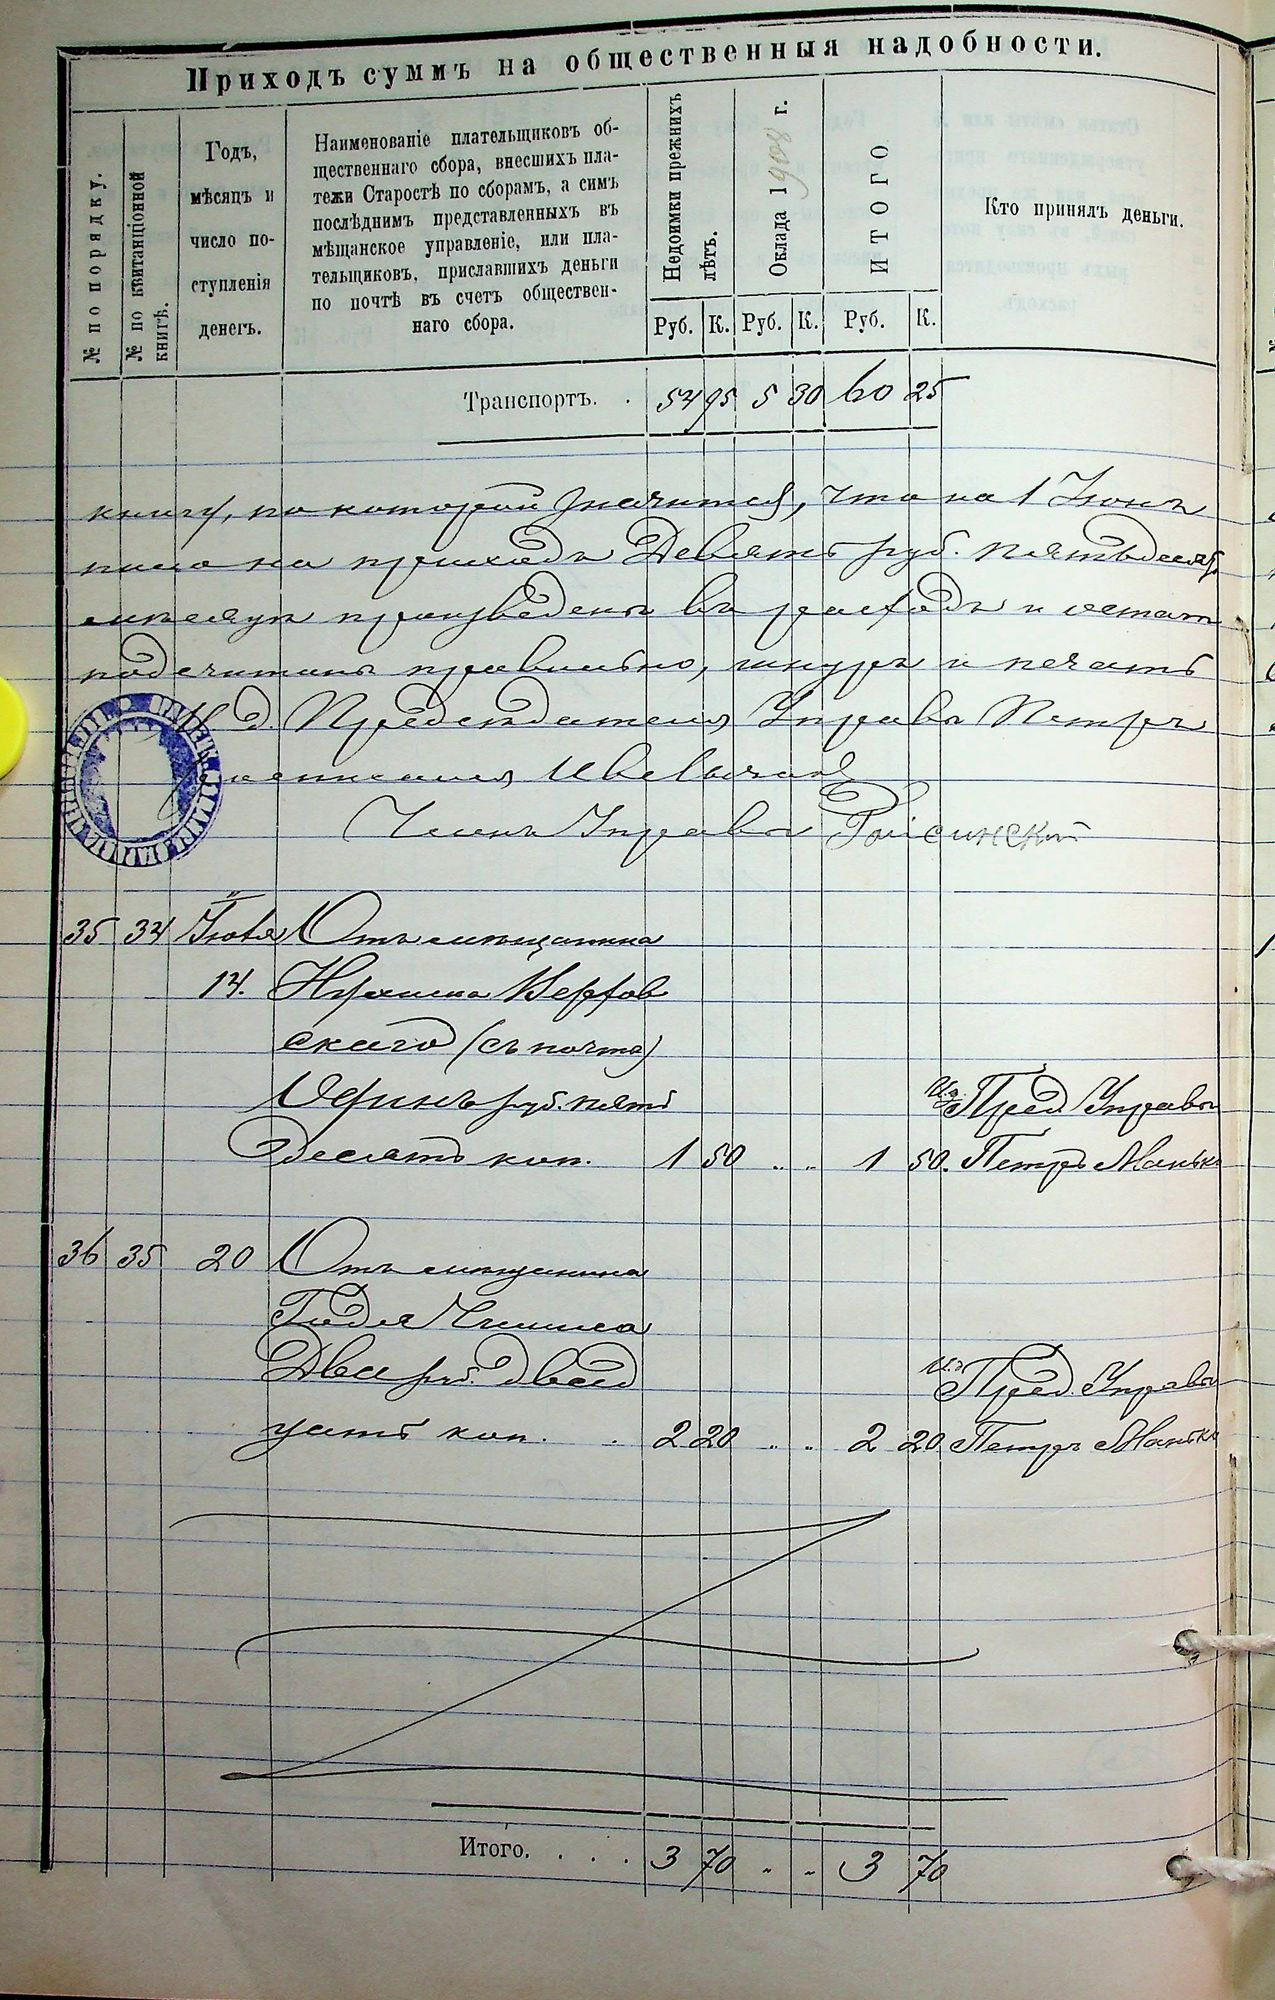 Приходъ суммъ на общественныя надобности.
№ по порядку.
№ по квитанціонной книгѣ.
Годъ,
мѣсяцъ и
число по-
ступленія
денегъ.
Наименованіе плательщиковъ об-
щественнаго сбора, внесшихъ пла-
тежи Старостѣ по сборамъ, а симъ
послѣднимъ представленныхъ въ
мѣщанское управленіе, или пла-
тельщиковъ, приславшихъ деньги
по почтѣ въ счетъ обществен-
наго сбора.
Недоимки прежнихъ лѣтъ.
Оклада 1908 г.
ИТОГО
Кто принялъ деньги.
Руб. К. Руб. К. Руб. К.
Транспортъ. . 54 95 5 30 60 25
книгу, по которой значится, что на 1 Іюнь
на приходъ Девять руб. пятьдесят
произведены въ расходъ и остат
подсчитаны правильно, шнуръ и печать
И. д. Предсѣдателя Управы Петръ
Членъ Управы
35 34 Іюня Отъ мѣщанина
14.
скаго (съ почты)
Одинъ руб. пять
десять коп. 1 50 „ „ 1 50.
И.д. Пред Управы
Петръ Манько
36 35 20 Отъ мѣщанина
Два руб. двад
цать коп. . 2 20 „ „ 2 20
И.д. Пред. Управы
Петръ Манько
Итого. . . . . 3 70 „ „ 3 70